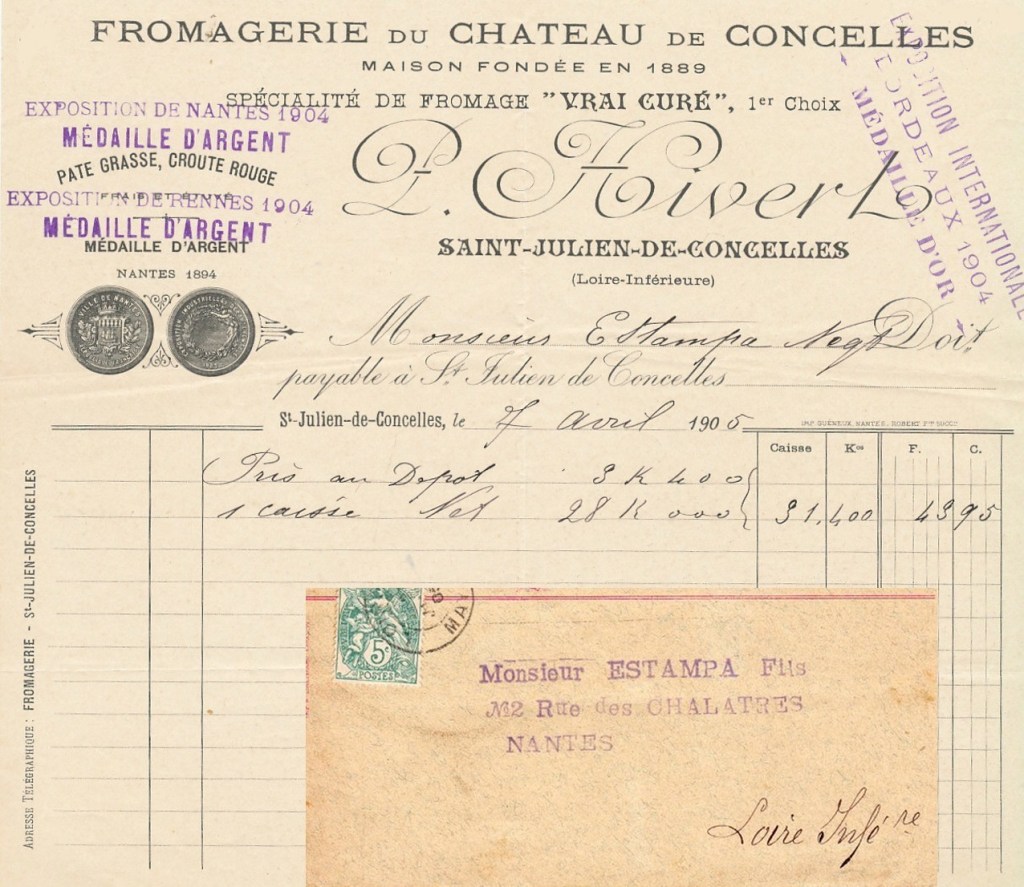 FROMAGERIE DU CHATEAU DE CONCELLES
MAISON FONDÉE EN 1889
SPÉCIALITÉ DE FROMAGE "VRAI CURÉ", 1er Choix
EXPOSITION DE NANTES 1904
MÉDAILLE D'ARGENT
PATE GRASSE, CROUTE ROUGE
EXPOSITION DE RENNES 1904
MÉDAILLE D'ARGENT
MÉDAILLE D'ARGENT
NANTES 1894
VILLE DE NANTES
P. Hivert
SAINT-JULIEN-DE-CONCELLES
(Loire-Inférieure)
EXPOSITION INTERNATIONALE
BORDEAUX 1904
MÉDAILLE D'OR
Monsieur Estampa Negt Doit
payable à St Julien de Concelles
St-Julien-de-Concelles, le 7 Avril 1905
IMP. GUÉNEUX, NANTES, ROBERT Fres SUCCrs
Caisse Kos F. C.
Pris au Depot 3 K 400
1 caisse Net 28 K 000 31,400 43 95
ADRESSE TÉLÉGRAPHIQUE : FROMAGERIE - St-JULIEN-DE-CONCELLES
5c
POSTES
MA
Monsieur ESTAMPA Fils
M2 Rue des CHALATRES
NANTES
Loire Infére